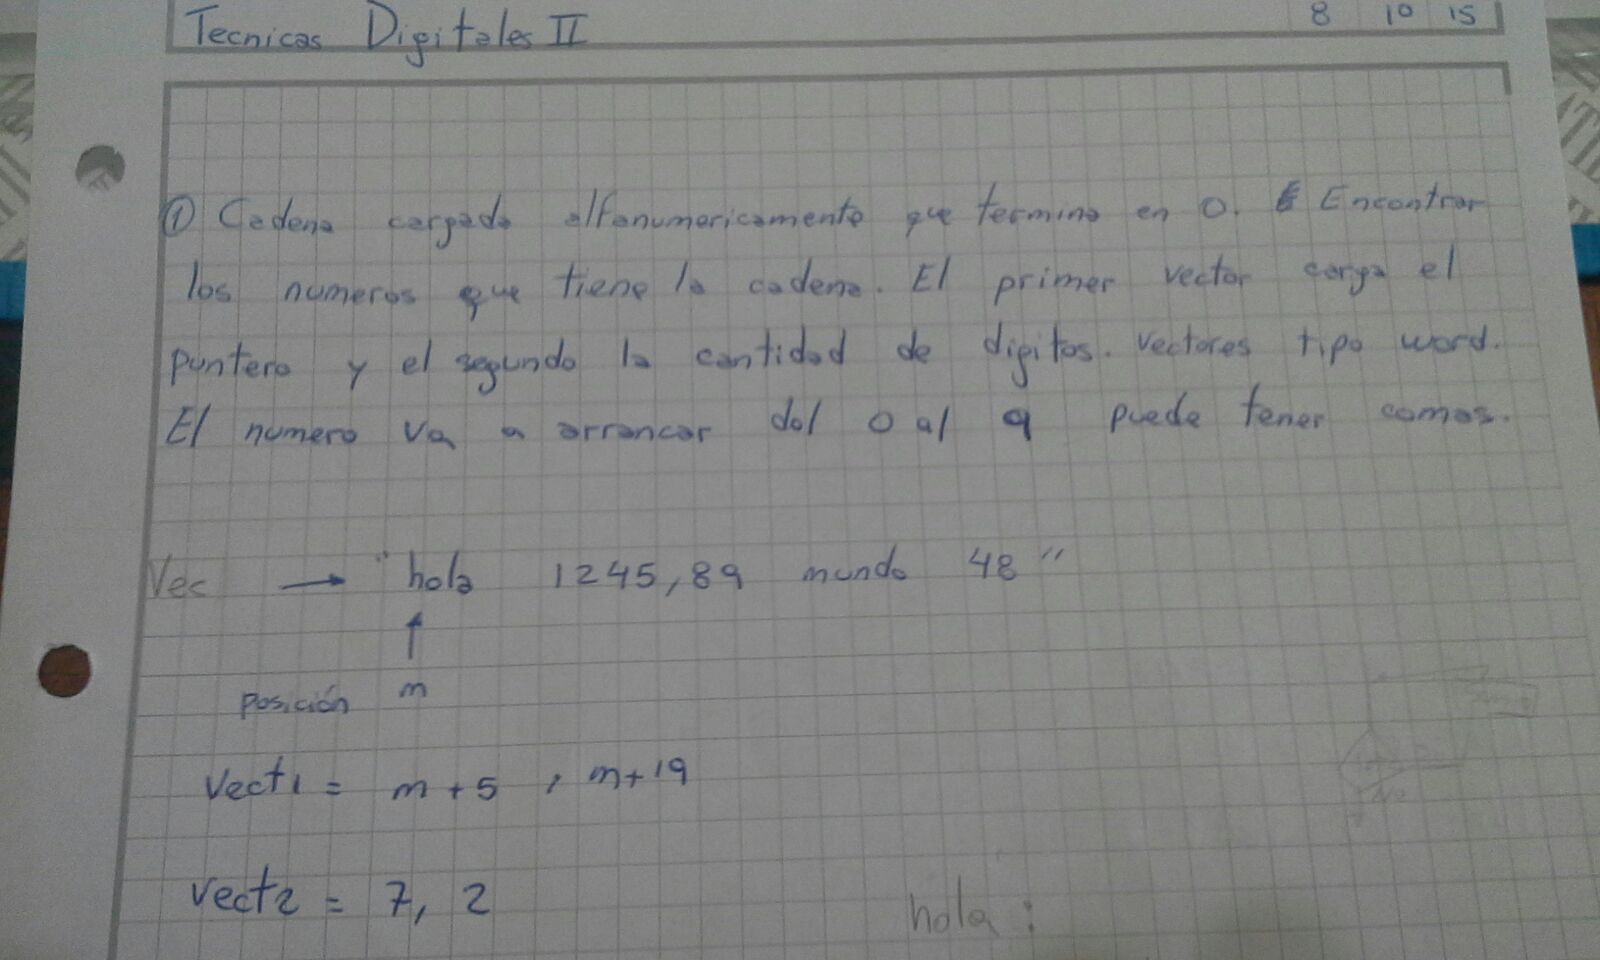 Tecnicas Digitales II
8 10 15
① Cadena cargada alfanumericamente que termina en 0. Encontrar
los numeros que tiene la cadena. El primer vector carga el
puntero y el segundo la cantidad de digitos. Vectores tipo word.
El numero va a arrancar del 0 al 9 puede tener comas.
Vec → "hola 1245,89 mundo 48"
↑
posición m
Vect1 = m+5 , m+19
Vect2 = 7, 2
hola :